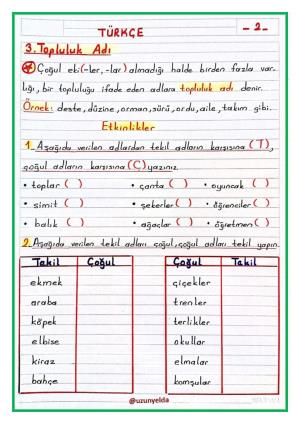 TÜRKÇE
- 2 -
3. Topluluk Adı
Çoğul eki (-ler, -lar) almadığı halde birden fazla var-
lığı, bir topluluğu ifade eden adlara topluluk adı denir.
Örnek: deste, düzine, orman, sürü, ordu, aile, takım gibi.
Etkinlikler
1_ Aşağıda verilen adlardan tekil adların karşısına (T),
çoğul adların karşısına (Ç) yazınız.
• toplar ( ) • çanta ( ) • oyuncak ( )
• simit ( ) • şekerler ( ) • öğrenciler ( )
• balık ( ) • ağaçlar ( ) • öğretmen ( )
2_ Aşağıda verilen tekil adları çoğul, çoğul adları tekil yapın.
Tekil Çoğul Çoğul Tekil
ekmek çiçekler
araba trenler
köpek terlikler
elbise okullar
kiraz elmalar
bahçe komşular
@uzunyelda